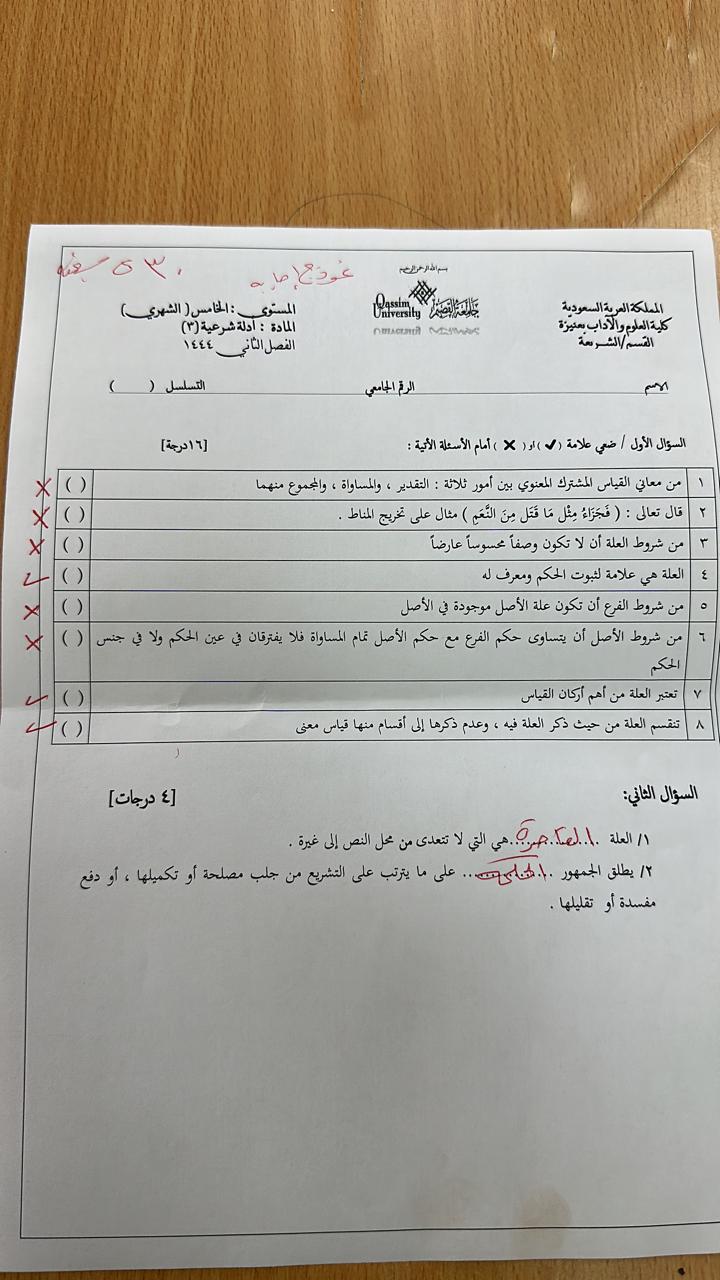 نموذج إجابة
٣٠
بسم الله الرحمن الرحيم
المملكة العربية السعودية
كلية العلوم والآداب بعنيزة
القسم/الشريعة
جامعة القصيم
Qassim University
المستوى : الخامس ( الشهري)
المادة : أدلة شرعية (٣)
الفصل الثاني ١٤٤٤
الاسم الرقم الجامعي التسلسل ( )
السؤال الأول / ضعي علامة (✓) او( ✗ ) أمام الأسئلة الأتية : [١٦درجة]
١ من معاني القياس المشترك المعنوي بين أمور ثلاثة : التقدير ، والمساواة ، والمجموع منهما ( ) ✗
٢ قال تعالى : ( فَجَزَاءُ مِثْل مَا قَتَل مِنَ النَّعَمِ ) مثال على تخريج المناط . ( ) ✗
٣ من شروط العلة أن لا تكون وصفاً محسوساً عارضاً ( ) ✗
٤ العلة هي علامة لثبوت الحكم ومعرف له ( ) ✓
٥ من شروط الفرع أن تكون علة الأصل موجودة في الأصل ( ) ✗
٦ من شروط الأصل أن يتساوى حكم الفرع مع حكم الأصل تمام المساواة فلا يفترقان في عين الحكم ولا في جنس ( ) ✗
الحكم
٧ تعتبر العلة من أهم أركان القياس ( ) ✓
٨ تنقسم العلة من حيث ذكر العلة فيه ، وعدم ذكرها إلى أقسام منها قياس معنى ( ) ✓
السؤال الثاني: [٤ درجات]
١/ العلة ..القاصرة...هي التي لا تتعدى من محل النص إلى غيرة .
٢/ يطلق الجمهور ..الحكمة... على ما يترتب على التشريع من جلب مصلحة أو تكميلها ، أو دفع
مفسدة أو تقليلها .